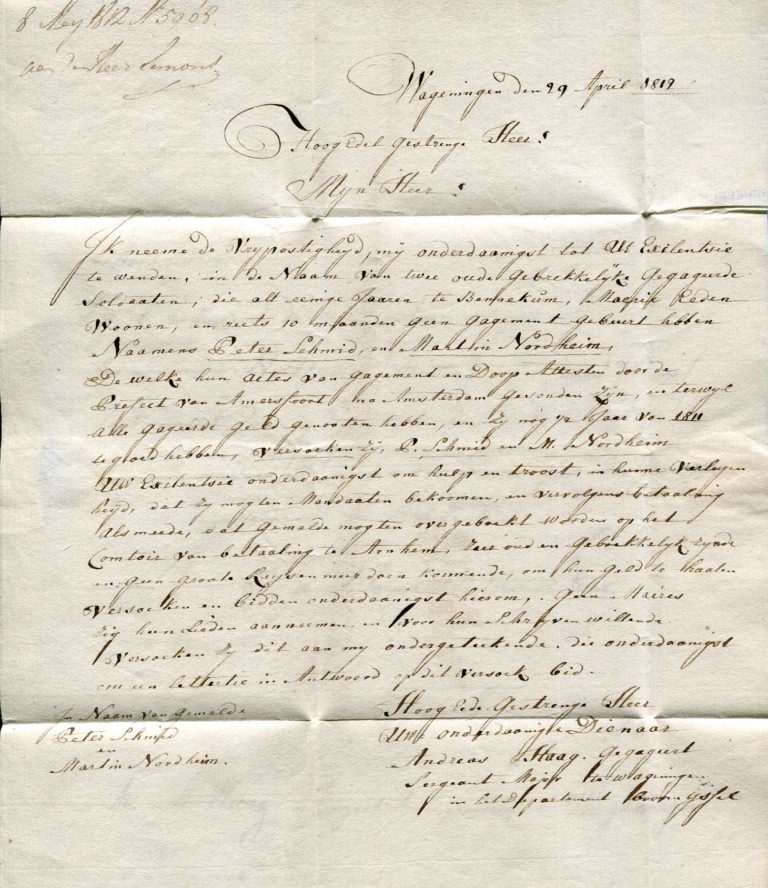 8 Mey 1812 N 5968.
aan den Heer Lemont
Wageningen den 29 April 1812
Hoog Edel Gestrenge Heer!
Myn Heer!
Ik neeme de Vrypostigheyd, my onderdaanigst tot UE Exilentsie
te wenden, in de Naam van twee oude Gebrekkelyke Gegageerde
Soldaaten, die alt eenige Jaaren te Bennekum, Mairie Reden
Woonen, en reets 10 maanden geen gagement gebeurt hbben
Naamens Peter Schmid, en Martin Nordheim,
De welke hun actes van gagement en Doop Attesten door de
Prefect van Amersfoort na Amsterdam gesonden zyn, en terwyl
alle gageerde geld genooten hebben, en zy nog ½ Jaar van 1811
te goed hebben, versoeken zy, P. Schmid en M. Nordheim
UE Exilentsie onderdaanigst om hulp en troost, in hunne verleegen
heyd, dat zy mogten Mandaaten bekoomen, en vervolgens betaaling
als meede, dat gemelde mogten overgeboekt worden op het
Comtoir van betaaling te Arnhem, Zeer oud en Gebrekkelyk zynde
en geen groote Reysen meer doen konnende, om hun geld te haalen
Versoeken en bidden onderdaanigst hierom, Geen Maires
zig hun Lieden aanneemen, en voor hun Schryven willende
Versoeken zy dit aan my ondergeteekende. die onderdaanigst
om een lettertie in Antwoord op dit versoek bid.
Hoog Ede Gestrenge Heer
UWE onderdaanige Dienaar
Andreas Haag. Gegageert
Sergeant Major te wageningen
in het Departement boven Yssel
In Naam van Gemelde
Peter Schmid
en
Martin Nordheim.